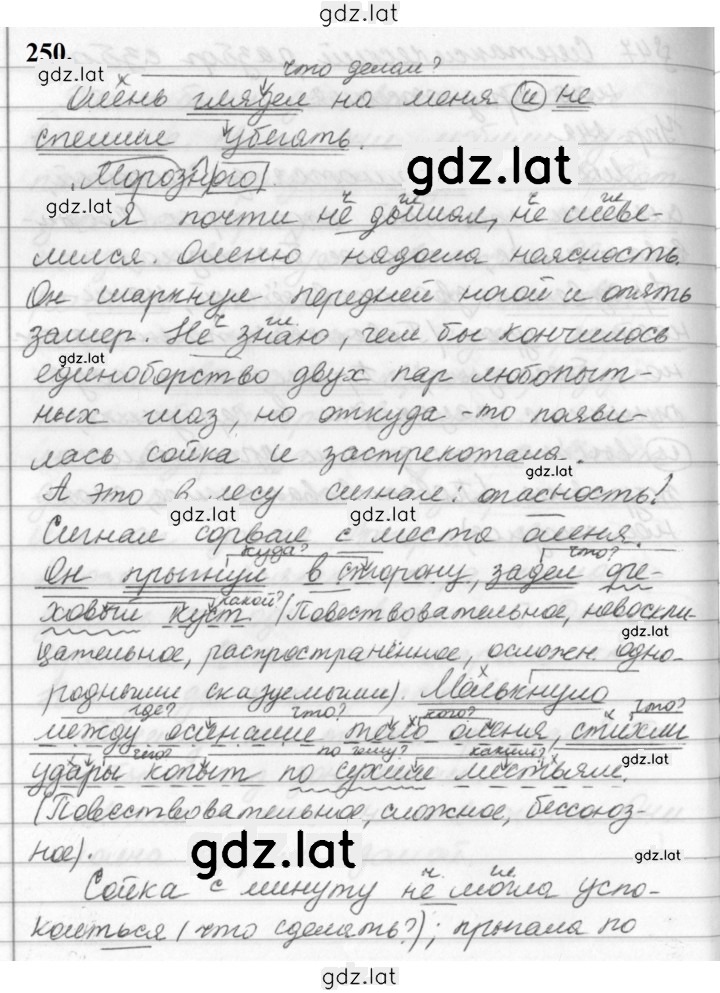 gdz.lat
250.
gdz.lat
что делал?
х
Олень глядел на меня и не
спешил убегать.
gdz.lat
Морозного
gdz.lat
ч гл. ч гл.
Я почти не дышал, не шеве-
лился. Оленю надоела неясность.
Он шаркнул передней ногой и опять
ч гл.
замер. Не знаю, чем бы кончилось
gdz.lat
единоборство двух пар любопыт-
ных глаз, но откуда-то появи-
лась сойка и застрекотала.
gdz.lat
А это в лесу сигнал: опасность!
gdz.lat gdz.lat
Сигнал сорвал с места оленя.
куда? что?
Он прыгнул в сторону, задел оре-
какой?
ховый куст (Повествовательное, невоскли-
gdz.lat
цательное, распространённое, осложнен. одно-
родными сказуемыми). Мелькнуло
где? что? кого? что?
между осинами тело оленя, стихли
чего? по чему? каким?
удары копыт по сухим листьям.
gdz.lat
(Повествовательное, сложное, бессоюз-
ное).
gdz.lat
gdz.lat
ч гл.
Сойка с минуту не могла успо-
коиться (что сделать?); прыгала по
gdz.lat
gdz.lat
gdz.lat